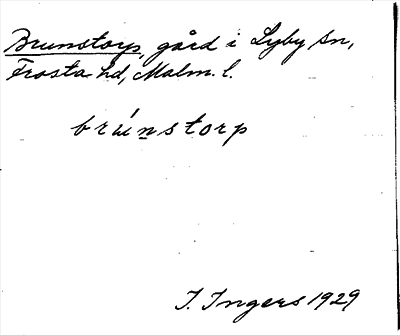 Brunstorp, gård i Lyby sn,
Frosta hd, Malm. l.
brúnstorp
I. Ingers 1929